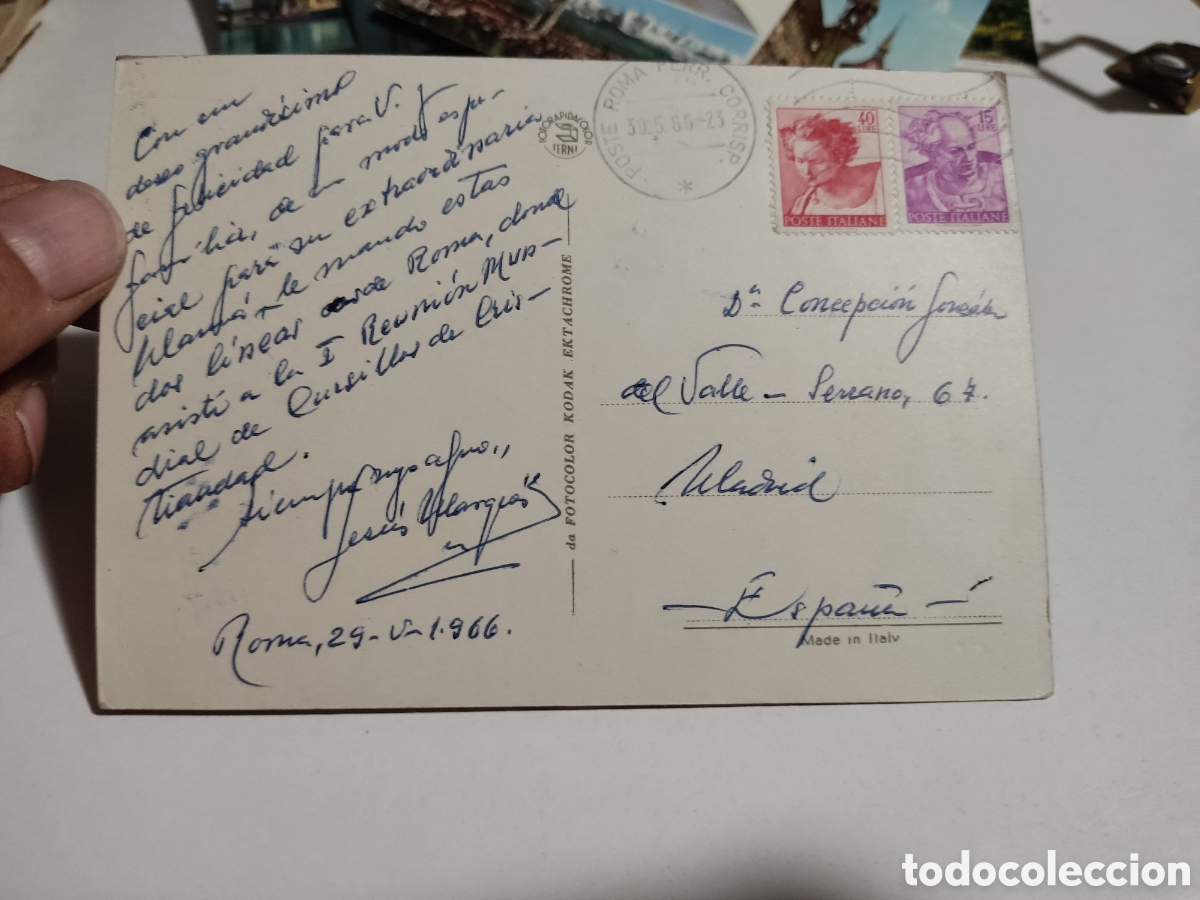 Con un
deseo grandísimo
de felicidad para V. y
familia, de un modo espe-
cial para su extraordinaria
Mamá le mando estas
dos líneas desde Roma, donde
asistí a la I Reunión Mun-
dial de Cursillos de Cris-
tiandad.
siempre suyo afmo.,
Jesús
Roma, 29-V-1.966.
FOTORAPIDACOLOR
TERNI
da FOTOCOLOR KODAK EKTACHROME
POSTE ROMA FERR. CORRISP.
30.5.66-23
40
LIRE
POSTE ITALIANE
15
LIRE
POSTE ITALIANE
Dª Concepción González
del Valle - Serrano, 67.
Madrid
- España -
Made in Italy
todocoleccion